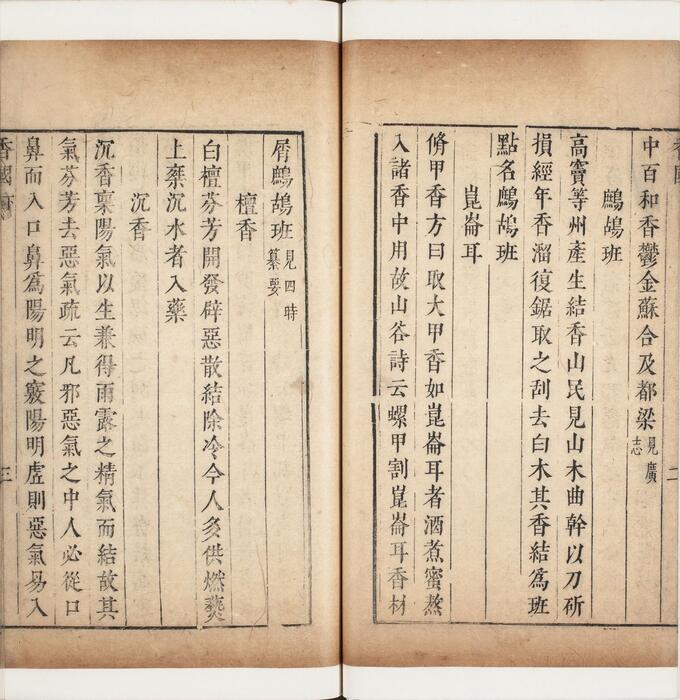 香國
二
中百和香鬱金蘇合及都梁見廣志
鷓鴣班
高竇等州產生結香山民見山木曲幹以刀斫
損經年香溜復鋸取之刮去白木其香結爲班
點名鷓鴣班
崑崙耳
脩甲香方曰取大甲香如崑崙耳者酒煮蜜熬
入諸香中用故山谷詩云螺甲割崑崙耳香材
屑鷓鴣班見四時纂要
檀香
白檀芬芳開發辟惡散結除冷今人多供燃爇
上桒沉水者入藥
沉香
沉香稟陽氣以生兼得雨露之精氣而結故其
氣芬芳去惡氣疏云凡邪惡氣之中人必從口
鼻而入口鼻爲陽明之竅陽明虛則惡氣易入
香國
三